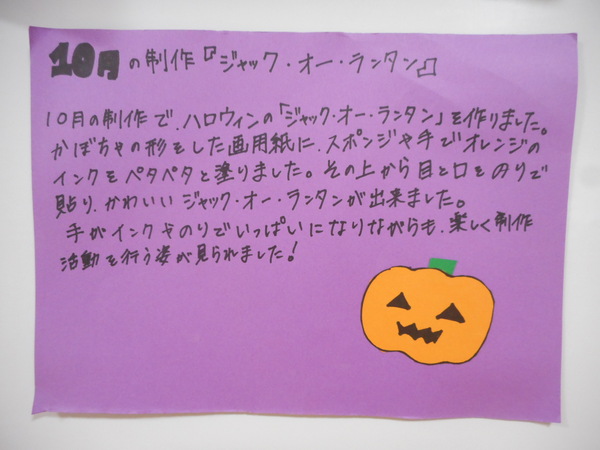 10月の制作『ジャック・オー・ランタン』
10月の制作で、ハロウィンの「ジャック・オー・ランタン」を作りました。
かぼちゃの形をした画用紙に、スポンジや手でオレンジの
インクをペタペタと塗りました。その上から目と口をのりで
貼り、かわいいジャック・オー・ランタンが出来ました。
手がインクやのりでいっぱいになりながらも、楽しく制作
活動を行う姿が見られました!